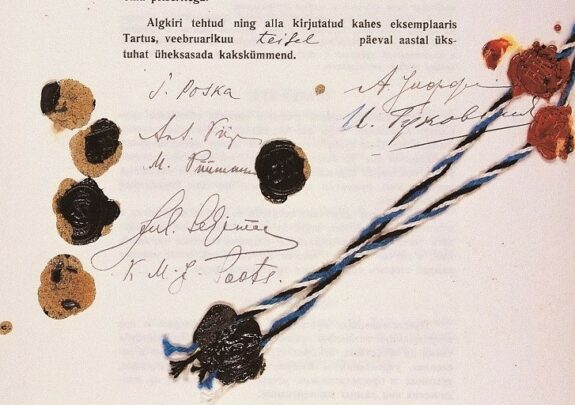 Algkiri tehtud ning alla kirjutatud kahes eksemplaaris
Tartus, veebruarikuu teisel päeval aastal üks-
tuhat üheksasada kakskümmend.
J. Poska
Ant. Piip
M. Püümann
Jul. Seljamaa
А. Иоффе
И. Гуковский